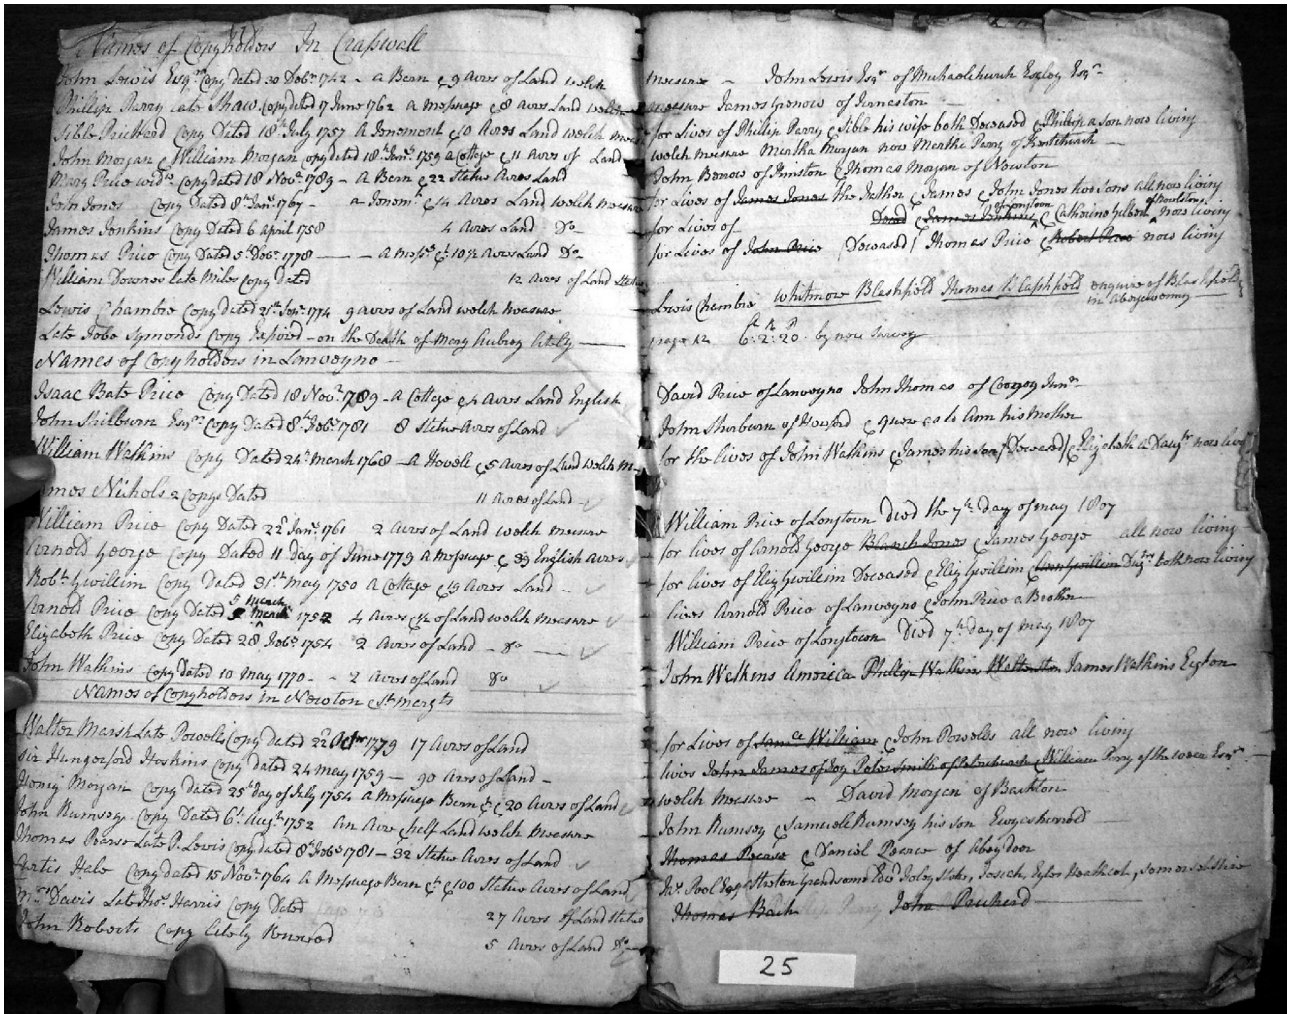 Names of Copyholders In Craswall
John Lewis Esqr. Copy dated 20 Dobr. 1742 - a Barn & 9 Acres of Land welch
Phillip Parry late Shaw Copy dated 17 June 1762 a Messuage & 8 Acres Land welch
Sible Prichard Copy Dated 18th July 1757 a Tenement & 10 Acres Land welch
John Morgan & William Morgan Copy dated 18th Janr. 1759 a Cottage & 11 Acres of Land
Mary Price widw. Copy dated 18 Novr. 1789 - a Barn & 22 Statue Acres Land
John Jones Copy Dated 8th Janr. 1767 - a Tenemt. & 4 Acres Land welch measure
James Jenkins Copy Dated 6 April 1758 4 Acres Land Do
Thomas Price Copy Dated 5th Decr. 1778 - a Messe. &c 10½ Acres Land Do
William Downes late Miles Copy dated 12 Acres of Land Statue
Lewis Chambre Copy dated 21st Janr. 1774 9 acres of Land welch measure
Late Jobe Symonds Copy Expired - on the Death of Mary Aubrey lately
Names of Copyholders in Lanveyno
Isaac Bate Price Copy Dated 18 Novr. 1789 - a Cottage & 4 Acres Land English
John Shilburn Esqr. Copy Dated 8th Febr. 1781 8 Statue Acres of Land
William Watkins Copy Dated 24th March 1768 - a Hovell & 5 Acres of Land welch
James Nichols 2 Copys Dated 11 Acres of Land
William Price Copy Dated 22d Janr. 1761 2 Acres of Land welch measure
Arnold George Copy Dated 11 Day of June 1779 a Messuage & 39 English Acres
Robt. Gwillim Copy Dated 31st May 1750 a Cottage & 19 Acres Land
Arnold Price Copy Dated 5 March 1752 4 Acres & ½ of Land welch measure
Elizabeth Price Copy Dated 28 Febr. 1754 2 Acres of Land - Do
John Watkins Copy Dated 10 May 1770 - 2 Acres of Land Do
Names of Copyholders in Newton & St. Margts
Walter Marsh Late Powells Copy dated 22d Octr 1779 17 Acres of Land
Sir Hungerford Hoskins Copy dated 24 May 1759 - 90 Acres of Land
Henry Morgan Copy dated 25th day of July 1754 a Messuage Barn & & 20 Acres of Land
John Rumsey Copy Dated 6th Augt. 1752 An Acre & half Land welch measure
Thomas Pearse Late P. Lewis Copy dated 8th Febr. 1781 - 32 Statue Acres of Land
Curtis Hale Copy dated 15 Novr. 1764 a Messuage Barn &c & 100 Statue Acres of Land
Mrs. Davis Late Thos. Harris Copy Dated 27 Acres of Land Statue
John Roberts Copy lately Renewed 5 Acres of Land Do
measure - John Lewis Esqr. of Michaelchurch Eskley Esqr.
measure James Gronow of
for Lives of Phillip Parry & Sible his wife both Deceased & Phillip a son now living
welch measure Martha Morgan now Martha Parry of Kentchurch
John Benow of & Thomas Morgan of Newton
for Lives of James Jones the Father & James & John Jones two sons all now living
for Lives of Dead & James Jenkins of Longtown & Catherine Gilbert of Rowlstone now living
for Lives of John Price Deceased / Thomas Price & Robert Price now living
Lewis Chambre Whitmore Blashfield Thomas Blashfield enquire of Blashfield
in Abergavenny
page 12 A R P
6: 2: 20 - by new Survey
David Price of Lanveyno John Thomas of Junr.
John Shurburn of & Ann his Mother
for the lives of John Watkins & James his son / Deceased / & Elizabeth a Daugr. now living
William Price of Longtown Died the 7th day of may 1807
for lives of Arnold George Blanch Jones & James George all now living
for lives of Eliz Gwillim Deceased & Eliz Gwillim & Gwillim Dagrs. both now living
lives Arnold Price of Lanveyno & John Price a Brother
William Price of Longtown Died 7th day of may 1807
John Watkins America Phillip Watkins James Watkins
for Lives of William & John Powells all now living
lives John James of Joy Peter Smith of & William Perry of the wern Esqr.
welch measure - David Morgan of Backton
John Rumsey & Samuell Rumsey his son Ewyasharrold
Thomas Pearse & Daniel Pearce of Abeydoor
Josiah Somersetshire
Thomas Bach John Prichard
25